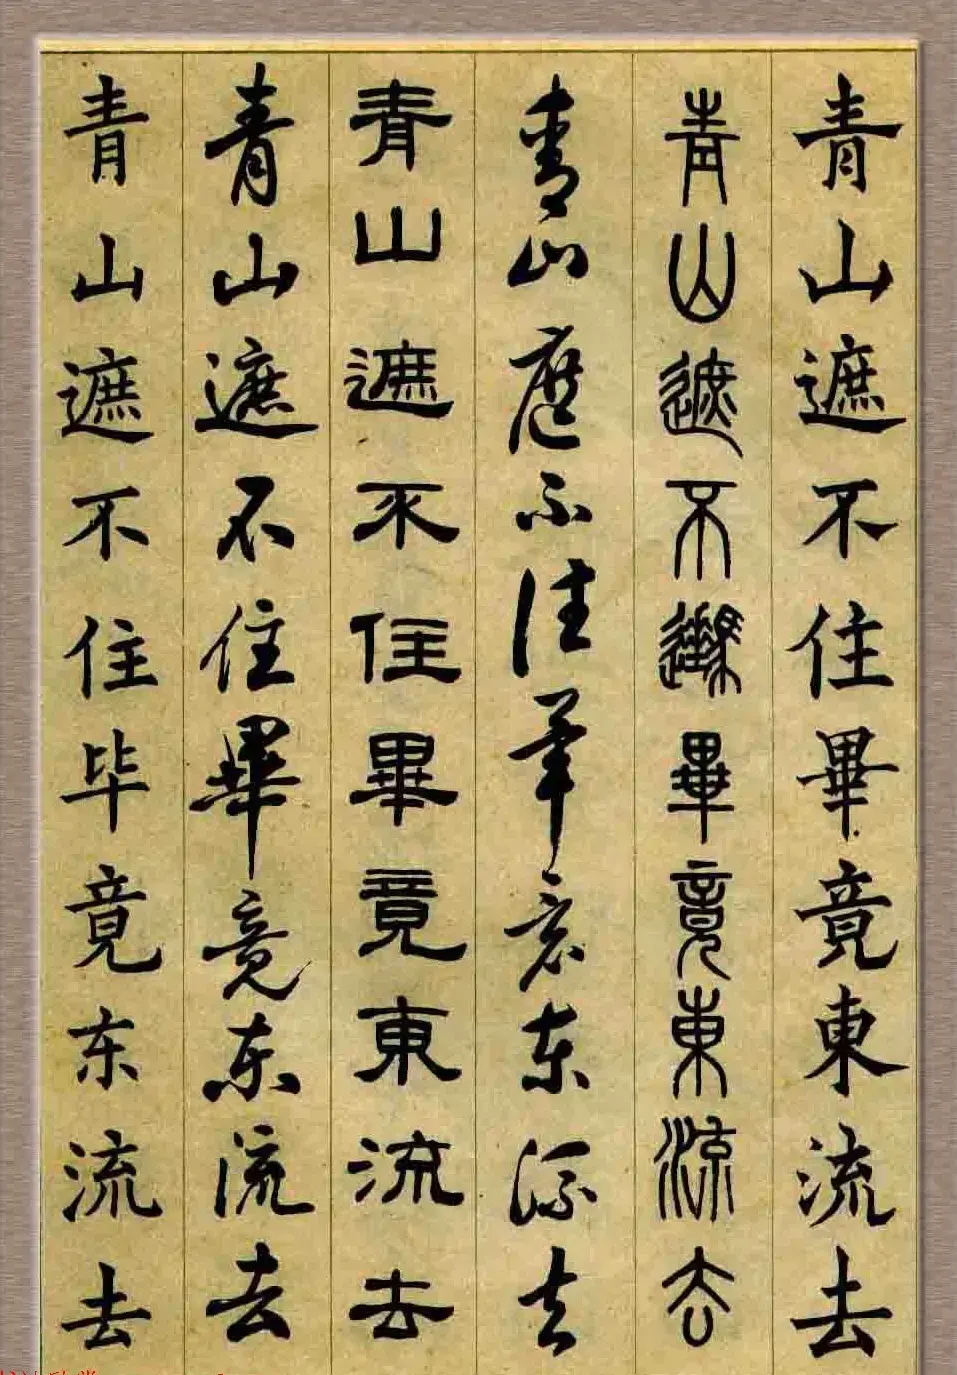 青山遮不住畢竟東流去
青山遮不住畢竟東流去
青山遮不住畢竟东流去
青山遮不住畢竟東流去
青山遮不住畢竟东流去
青山遮不住毕竟东流去